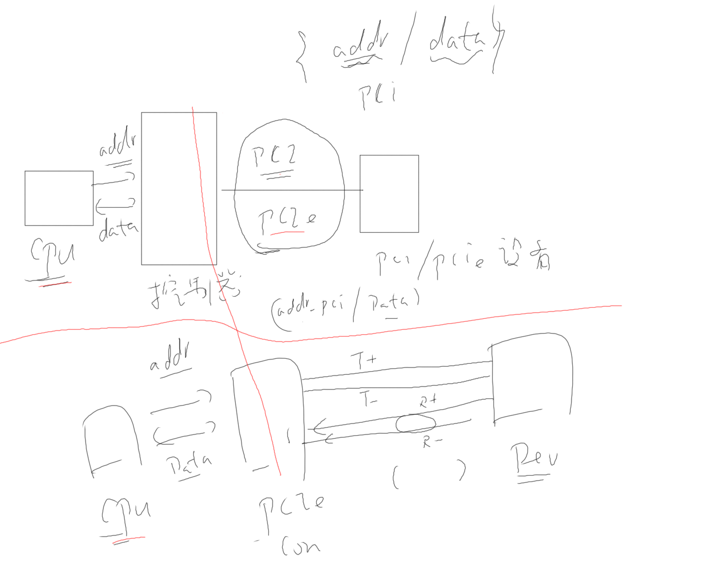 { addr / data }
PCi
addr
data
CPU
控制器
PCI
PCIe
pci/pcie 设备
(addr_pci / Data)
addr
Data
CPU
PCIe
Con
T+
T-
R+
R-
( )
Dev